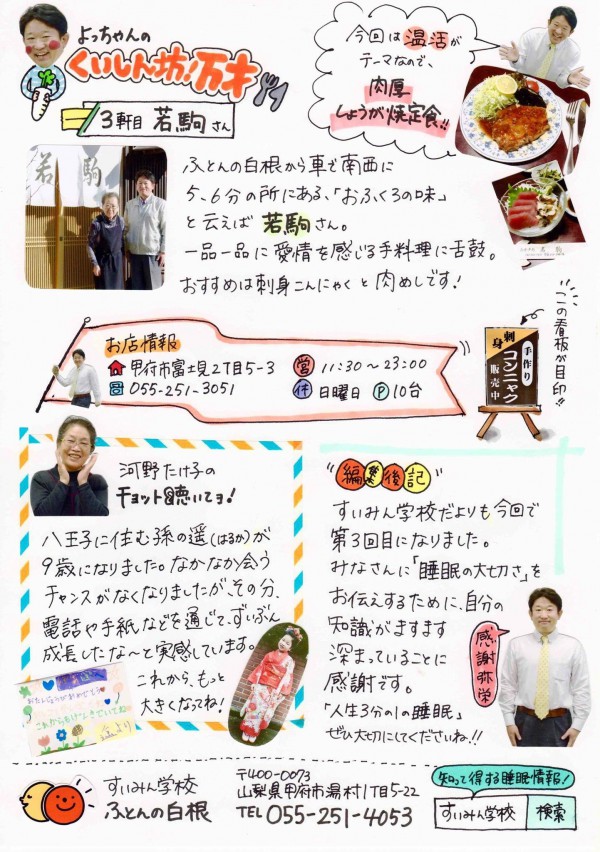 よっちゃんの
くいしん坊!万才
3軒目 若駒さん
今回は温活が
テーマなので、
肉厚
しょうが焼定食!!
若駒
ふとんの白根から車で南西に
5、6分の所にある、「おふくろの味」
と云えば 若駒さん。
一品一品に愛情を感じる手料理に舌鼓。
おすすめは刺身こんにゃくと肉めしです!
お店情報
甲府市富士見2丁目5-3
055-251-3051
営 11:30~23:00
休 日曜日 P 10台
この看板が目印!!
刺身
手作り
コンニャク
販売中
河野たけ子の
チョット聴いてョ!
八王子に住む孫の遥(はるか)が
9歳になりました。なかなか会う
チャンスがなくなりましたが、その分、
電話や手紙などを通じて、ずいぶん
成長したな~と実感しています。
これから、もっと
大きくなってね!
おたんじょうびおめでとう
これからも元気でいてね
遥より
編集後記
すいみん学校だよりも今回で
第3回目になりました。
みなさんに「睡眠の大切さ」を
お伝えするために、自分の
知識がますます
深まっていることに
感謝です。
「人生3分の1の睡眠」
ぜひ大切にしてくださいね!!
感謝弥栄
すいみん学校
ふとんの白根
〒400-0073
山梨県甲府市湯村1丁目5-22
TEL 055-251-4053
知って得する睡眠情報!
すいみん学校 検索